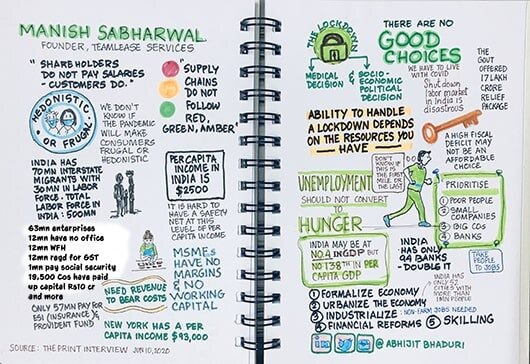 MANISH SABHARWAL
FOUNDER, TEAMLEASE SERVICES
"SHAREHOLDERS
DO NOT PAY SALARIES
- CUSTOMERS DO."
"SUPPLY
CHAINS
DO NOT
FOLLOW
RED,
GREEN, AMBER"
HEDONISTIC
OR FRUGAL
WE DON'T
KNOW IF
THE PANDEMIC
WILL MAKE
CONSUMERS
FRUGAL OR
HEDONISTIC
INDIA HAS
70MN INTERSTATE
MIGRANTS WITH
30MN IN LABOR
FORCE: TOTAL
LABOR FORCE IN
INDIA: 500MN
PER CAPITA
INCOME IN
INDIA IS
$2500
IT IS HARD TO
HAVE A SAFETY
NET AT THIS
LEVEL OF PER
CAPITA INCOME
63mn enterprises
12mn have no office
12mn WFH
12mn regd for GST
1mn pay social security
19,500 Cos have paid
up capital Rs10 cr
and more
ONLY 57MN PAY FOR
ESI (INSURANCE) &
PROVIDENT FUND
MSMEs
HAVE NO
MARGINS
& NO
WORKING
CAPITAL
NEED REVENUE
TO BEAR COSTS
NEW YORK HAS A PER
CAPITA INCOME $93,000
SOURCE: THE PRINT INTERVIEW JUN 10, 2020
THE LOCKDOWN
MEDICAL
DECISION
&
SOCIO-
ECONOMIC
POLITICAL
DECISION
THERE ARE NO
GOOD
CHOICES
WE HAVE TO LIVE
WITH COVID
Shut down
labor market
in India is
disastrous
THE
GOVT
OFFERED
17 LAKH
CRORE
RELIEF
PACKAGE
ABILITY TO HANDLE
A LOCKDOWN DEPENDS
ON THE RESOURCES YOU
HAVE
A HIGH FISCAL
DEFICIT MAY
NOT BE AN
AFFORDABLE
CHOICE.
DON'T
KNOW IF
THIS IS THE
FIRST MILE
OR THE
LAST
UNEMPLOYMENT
SHOULD NOT CONVERT
TO
HUNGER
PRIORITISE
1 POOR PEOPLE
2 SMALL
COMPANIES
3 BIG COs
4 BANKS
INDIA MAY BE AT
No.4 IN GDP BUT
NO 138TH IN PER
CAPITA GDP
INDIA
HAS ONLY
94 BANKS
- DOUBLE IT
TAKE
PEOPLE
TO JOBS
INDIA HAS
ONLY 52
CITIES WITH
MORE THAN
1MN PEOPLE
1 FORMALIZE ECONOMY
2 URBANIZE THE ECONOMY
3 INDUSTRIALIZE: NON-FARM JOBS NEEDED
4 FINANCIAL REFORMS 5 SKILLING
@ ABHIJIT BHADURI